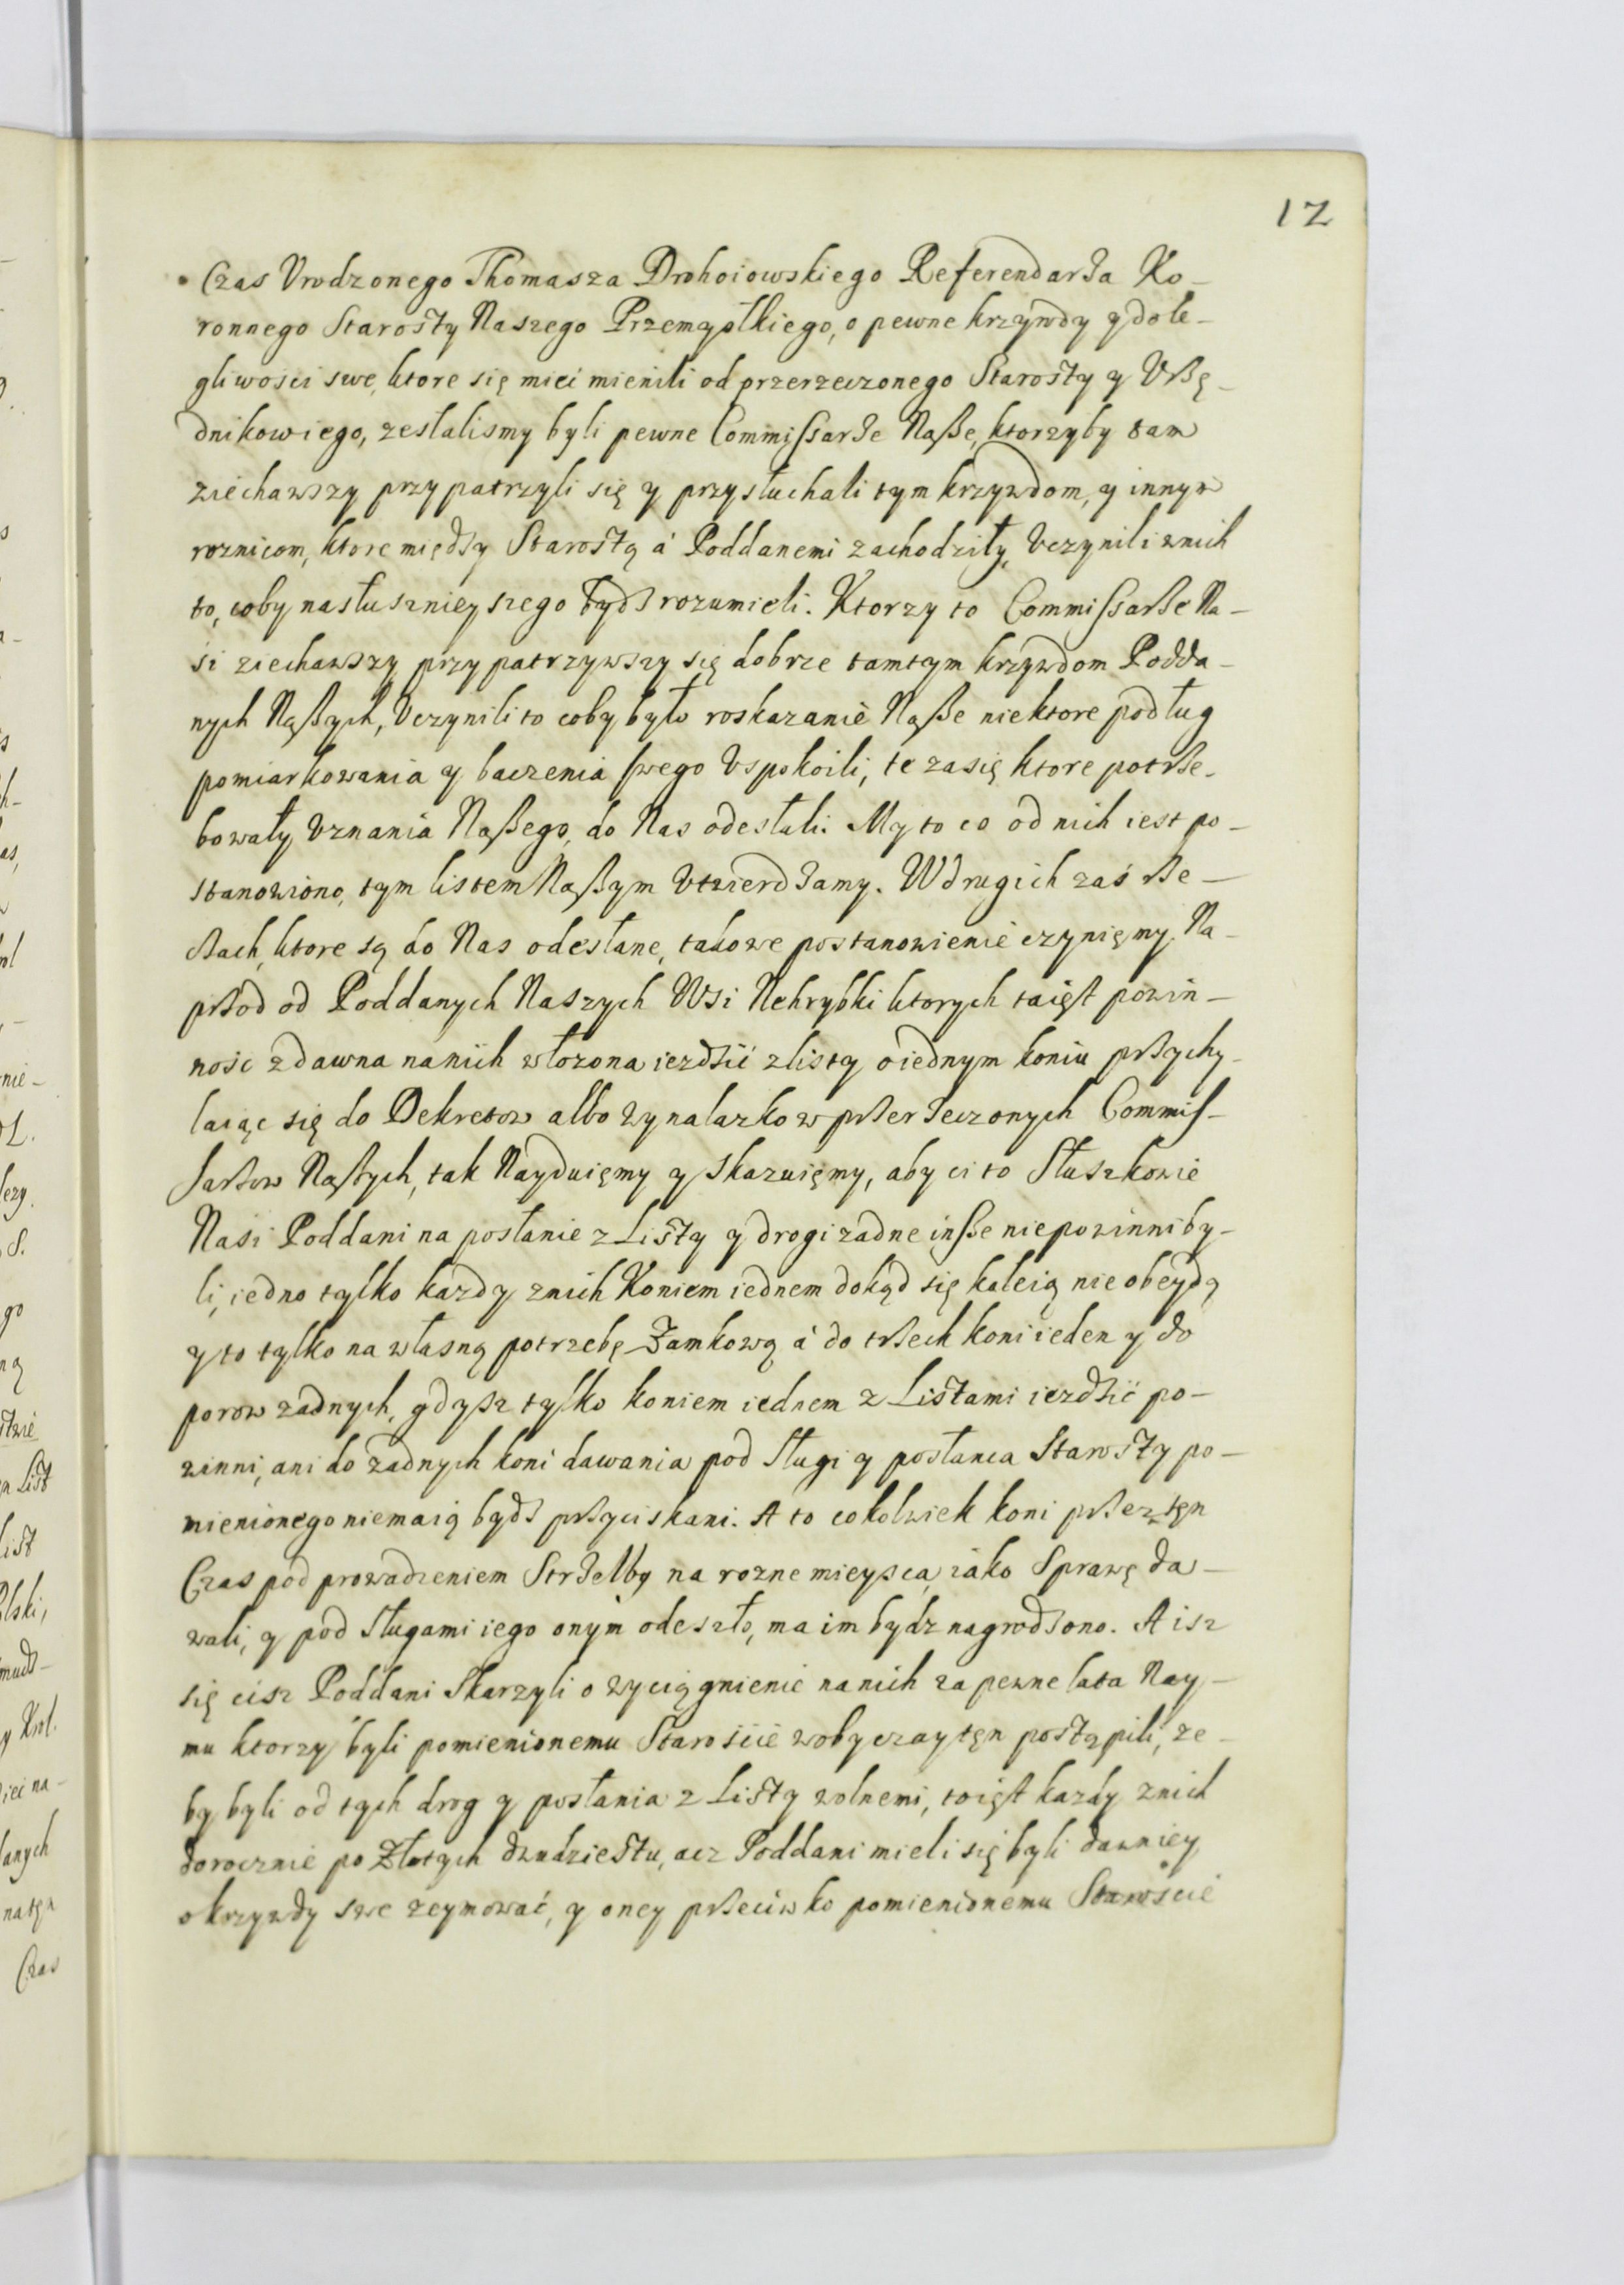 12
Czas Vrodzonego Thomasza Drohoiowskiego Referendarza Ko-
ronnego Starosty Naszego Przemyslkiego, o pewne krzywdy y dole-
gliwosci swe, ktore się mieć mienili od przerzeczonego Starosty y Vrzę-
dnikow iego, zeslalismy byli pewne Commissarze Nasze, ktorzyby tam
ziechawszy przypatrzyli się y przysłuchali tym krzywdom, y innym
roznicom, ktore między Starostą á Poddanemi zachodziły, Vczynili w nich
to, coby nasłusznieyszego bydz rozumieli. Ktorzy to Commissarze Na-
si ziechawszy przypatrzywszy się dobrze tamtym krzywdom Podda-
nych Naszych, Vczynili to coby było roskazanie Nasze niektore podług
pomiarkowania y baczenia swego Vspokoili, te zasię ktore potrze-
bowały Vznania Naszego, do Nas odesłali. My to co od nich iest po-
stanowiono, tym listem Naszym Vtwierdzamy. W drugich zaś rze-
czach, ktore są do Nas odesłane, takowe postanowienie czynięmy. Na-
przod od Poddanych Naszych Wsi Nehrybki ktorych ta ięst powin-
nosc zdawna na nich włozona iezdzić z listy o iednym koniu przychy-
laiąc się do Dekretow albo wynalazkow przerzeczonych Commis-
sarzow Naszych, tak Nayduięmy y skazuięmy, aby ci to Służkowie
Nasi Poddani na posłanie z Listy y drogi zadne insze niepowinni by-
li, iedno tylko kazdy z nich Koniem iednem dokąd się koleią nie obeydą
y to tylko na własną potrzebę Zamkową á do trzech koni ieden y do
porow zadnych, gdysz tylko koniem iednem z Listami iezdzić po-
winni, ani do zadnych koni dawania pod Sługi y posłanca Starosty po-
mienionego niemaią bydz przyciskani. A to cokolwiek koni przez tęn
Czas pod prowadzeniem Strzelby na rozne mieysca, iako Sprawę da-
wali, y pod Sługami iego onym odeszło, ma im bydz nagrodzono. A isz
się cisz Poddani Skarzyli o wyciągnienie na nich za pewne lata Nay-
mu ktorzy byli pomienionemu Staroście w obyczay tęn postąpili, ze-
by byli od tych drog y posłania z Listy wolnemi, to ięst kazdy z nich
dorocznie po Złotych dwudziestu, acz Poddani mieli się byli dawniey
o krzywdy swe zeymować, y oney przeciwko pomienionemu Staroscie